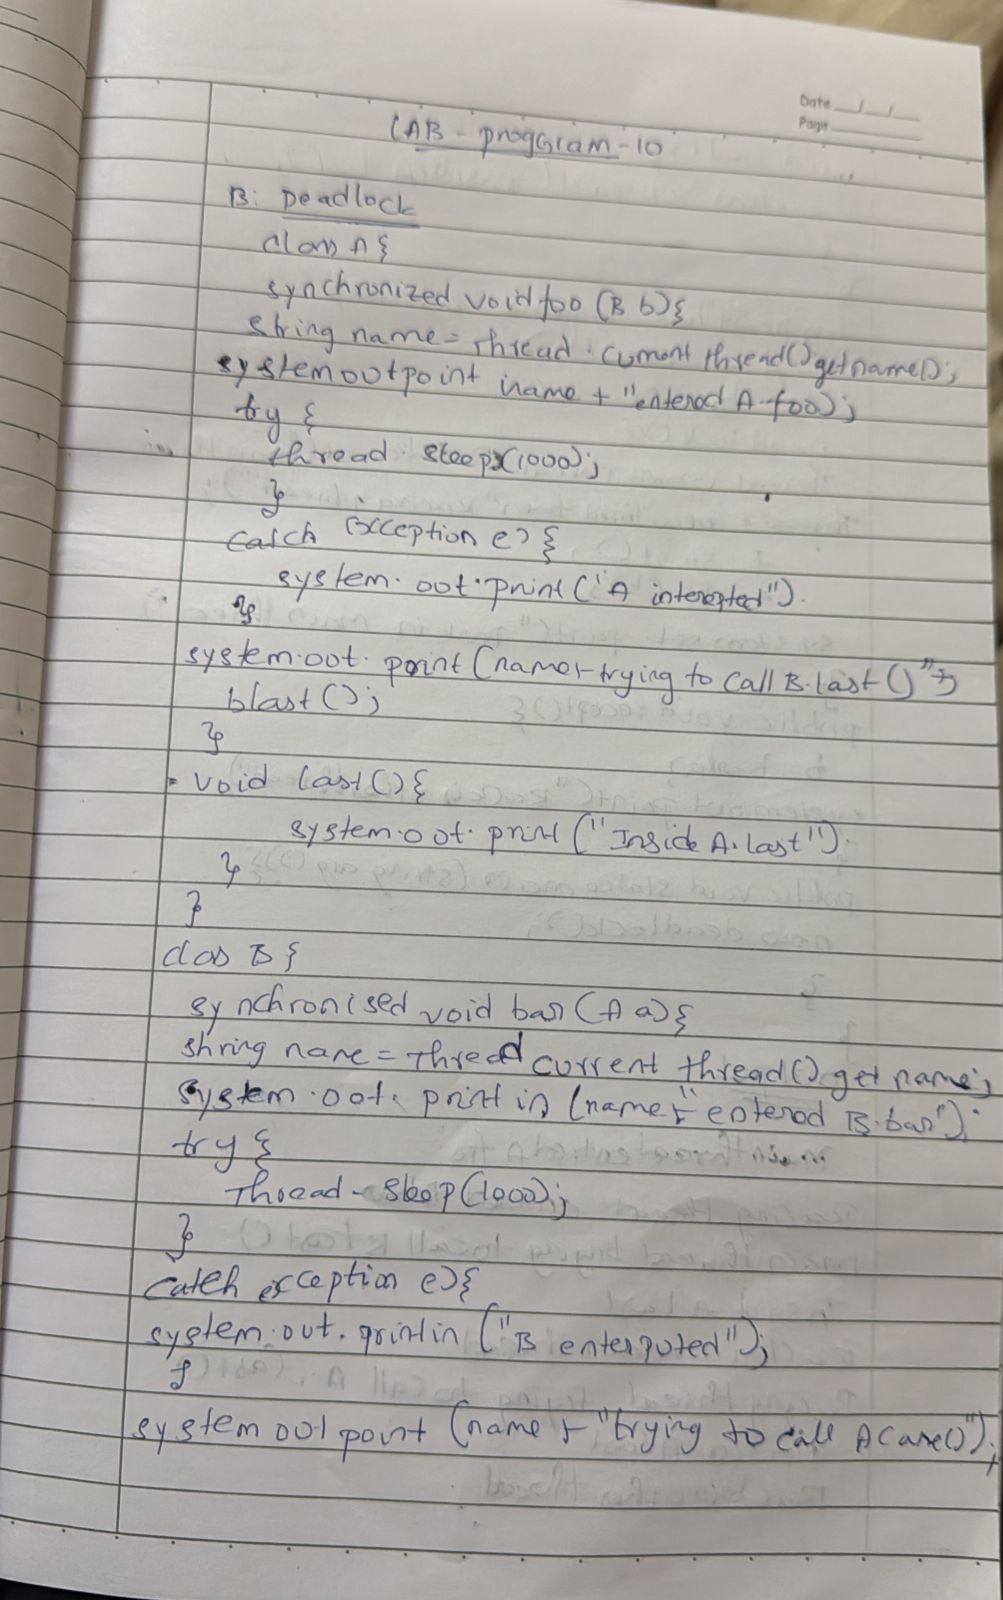 Date
Page
LAB - proggram - 10
B: Deadlock
class A {
synchronized void foo (B b) {
string name = thread . current thread() getname();
system out point name + "entered A foo);
try {
thread . sleep (1000);
}
catch exception e) {
system . out . print ("A interepted").
}
system.out. point (name + trying to call B.last ()");
blast ();
}
void last () {
system.out. print ("Inside A.last").
}
}
class B {
synchronised void bar (A a) {
string name = Thread current thread() get name;
system .out. print in (name + "entered B.bar");
try {
Thread - sleep (1000);
}
catch exception e) {
system.out. println ("B enterputed");
}
system out point (name + "trying to call